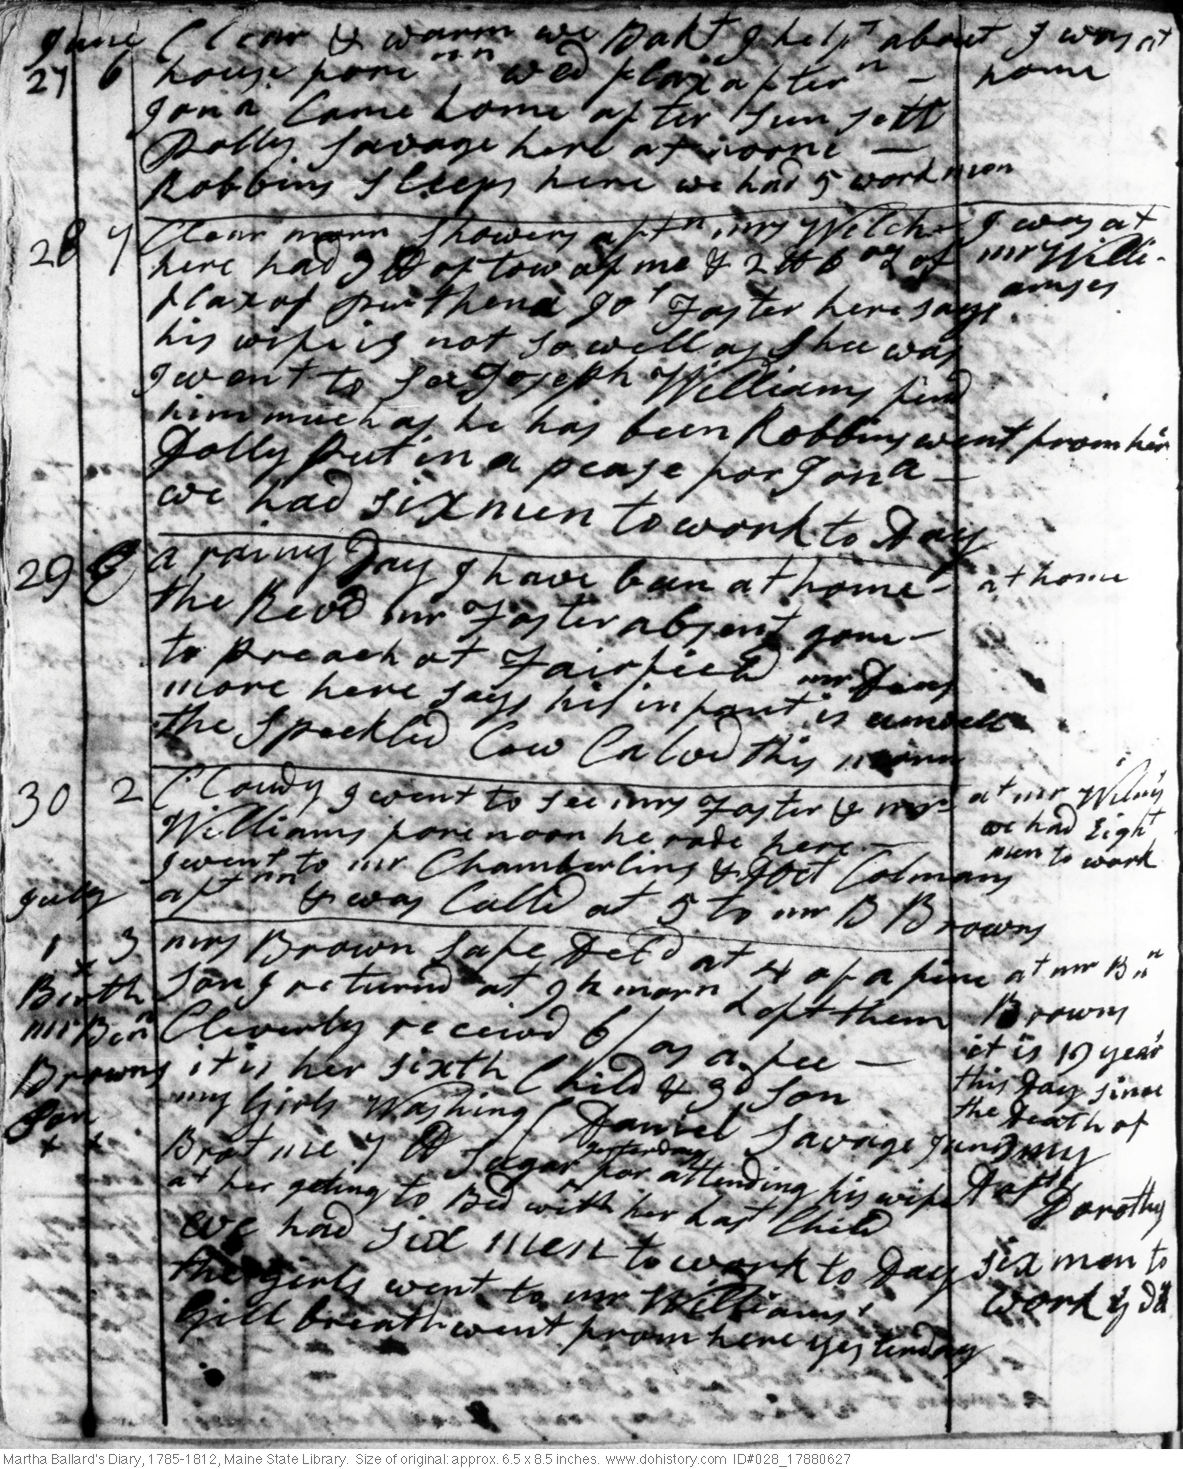 June Clear & warm we Bakt I help about I was at
27 6 house fore nn wed flax after n – home
Jona Came home after Sun sett
Polly Savage here at noone –
Robbins Sleeps here we had 5 work men
28 7 Clear morn Showers aft n mrs Welch I was at
here had 9 lb of tow of me & 2 lb 6 oz of mr Willi-
flax of Parthena Jos Foster here says amses
his wife is not So well as Shee was
I went to See Joseph Williams find
him much as he has been Robbins went from her
Dolly Put in a pease for Jona –
we had six men to work to Day
29 E a rainy Day I have been at home – at home
the Revd mr Foster absent gone –
to preach at Fairfield mr Dens
more here says his infant is unwell
the Speckled Cow Calvd this morn
30 2 Cloudy I went to see mrs Foster & mrs at mr
Williams forenoon he rode here – we had Eight
I went to mr Chamberlins & Doct Colmans men to work
July aft nn & was Calld at 5 to mr B Browns
1 3 mrs Brown Safe Deld at 4 of a fine at mr Bn
Birth Son I returnd at 9 h morn n Left them Browns
mr Ben Cleverly receivd 6/ as a fee – it is 19 year
Browns it is her sixth Child & 3d Son this Day since
Son my Girls Washing Daniel Savage Junr the Death of
x x Brot me 7 lb Sugar yesterday for attending his wife my
at her geting to Bed with her last Child Daftr Dorothy
we had six men to work to Day six men to
the girls went to mr Williams' work
Gill breath went from here yesterday
Martha Ballard's Diary, 1785-1812, Maine State Library. Size of original: approx. 6.5 x 8.5 inches. www.dohistory.com ID#028_17880627